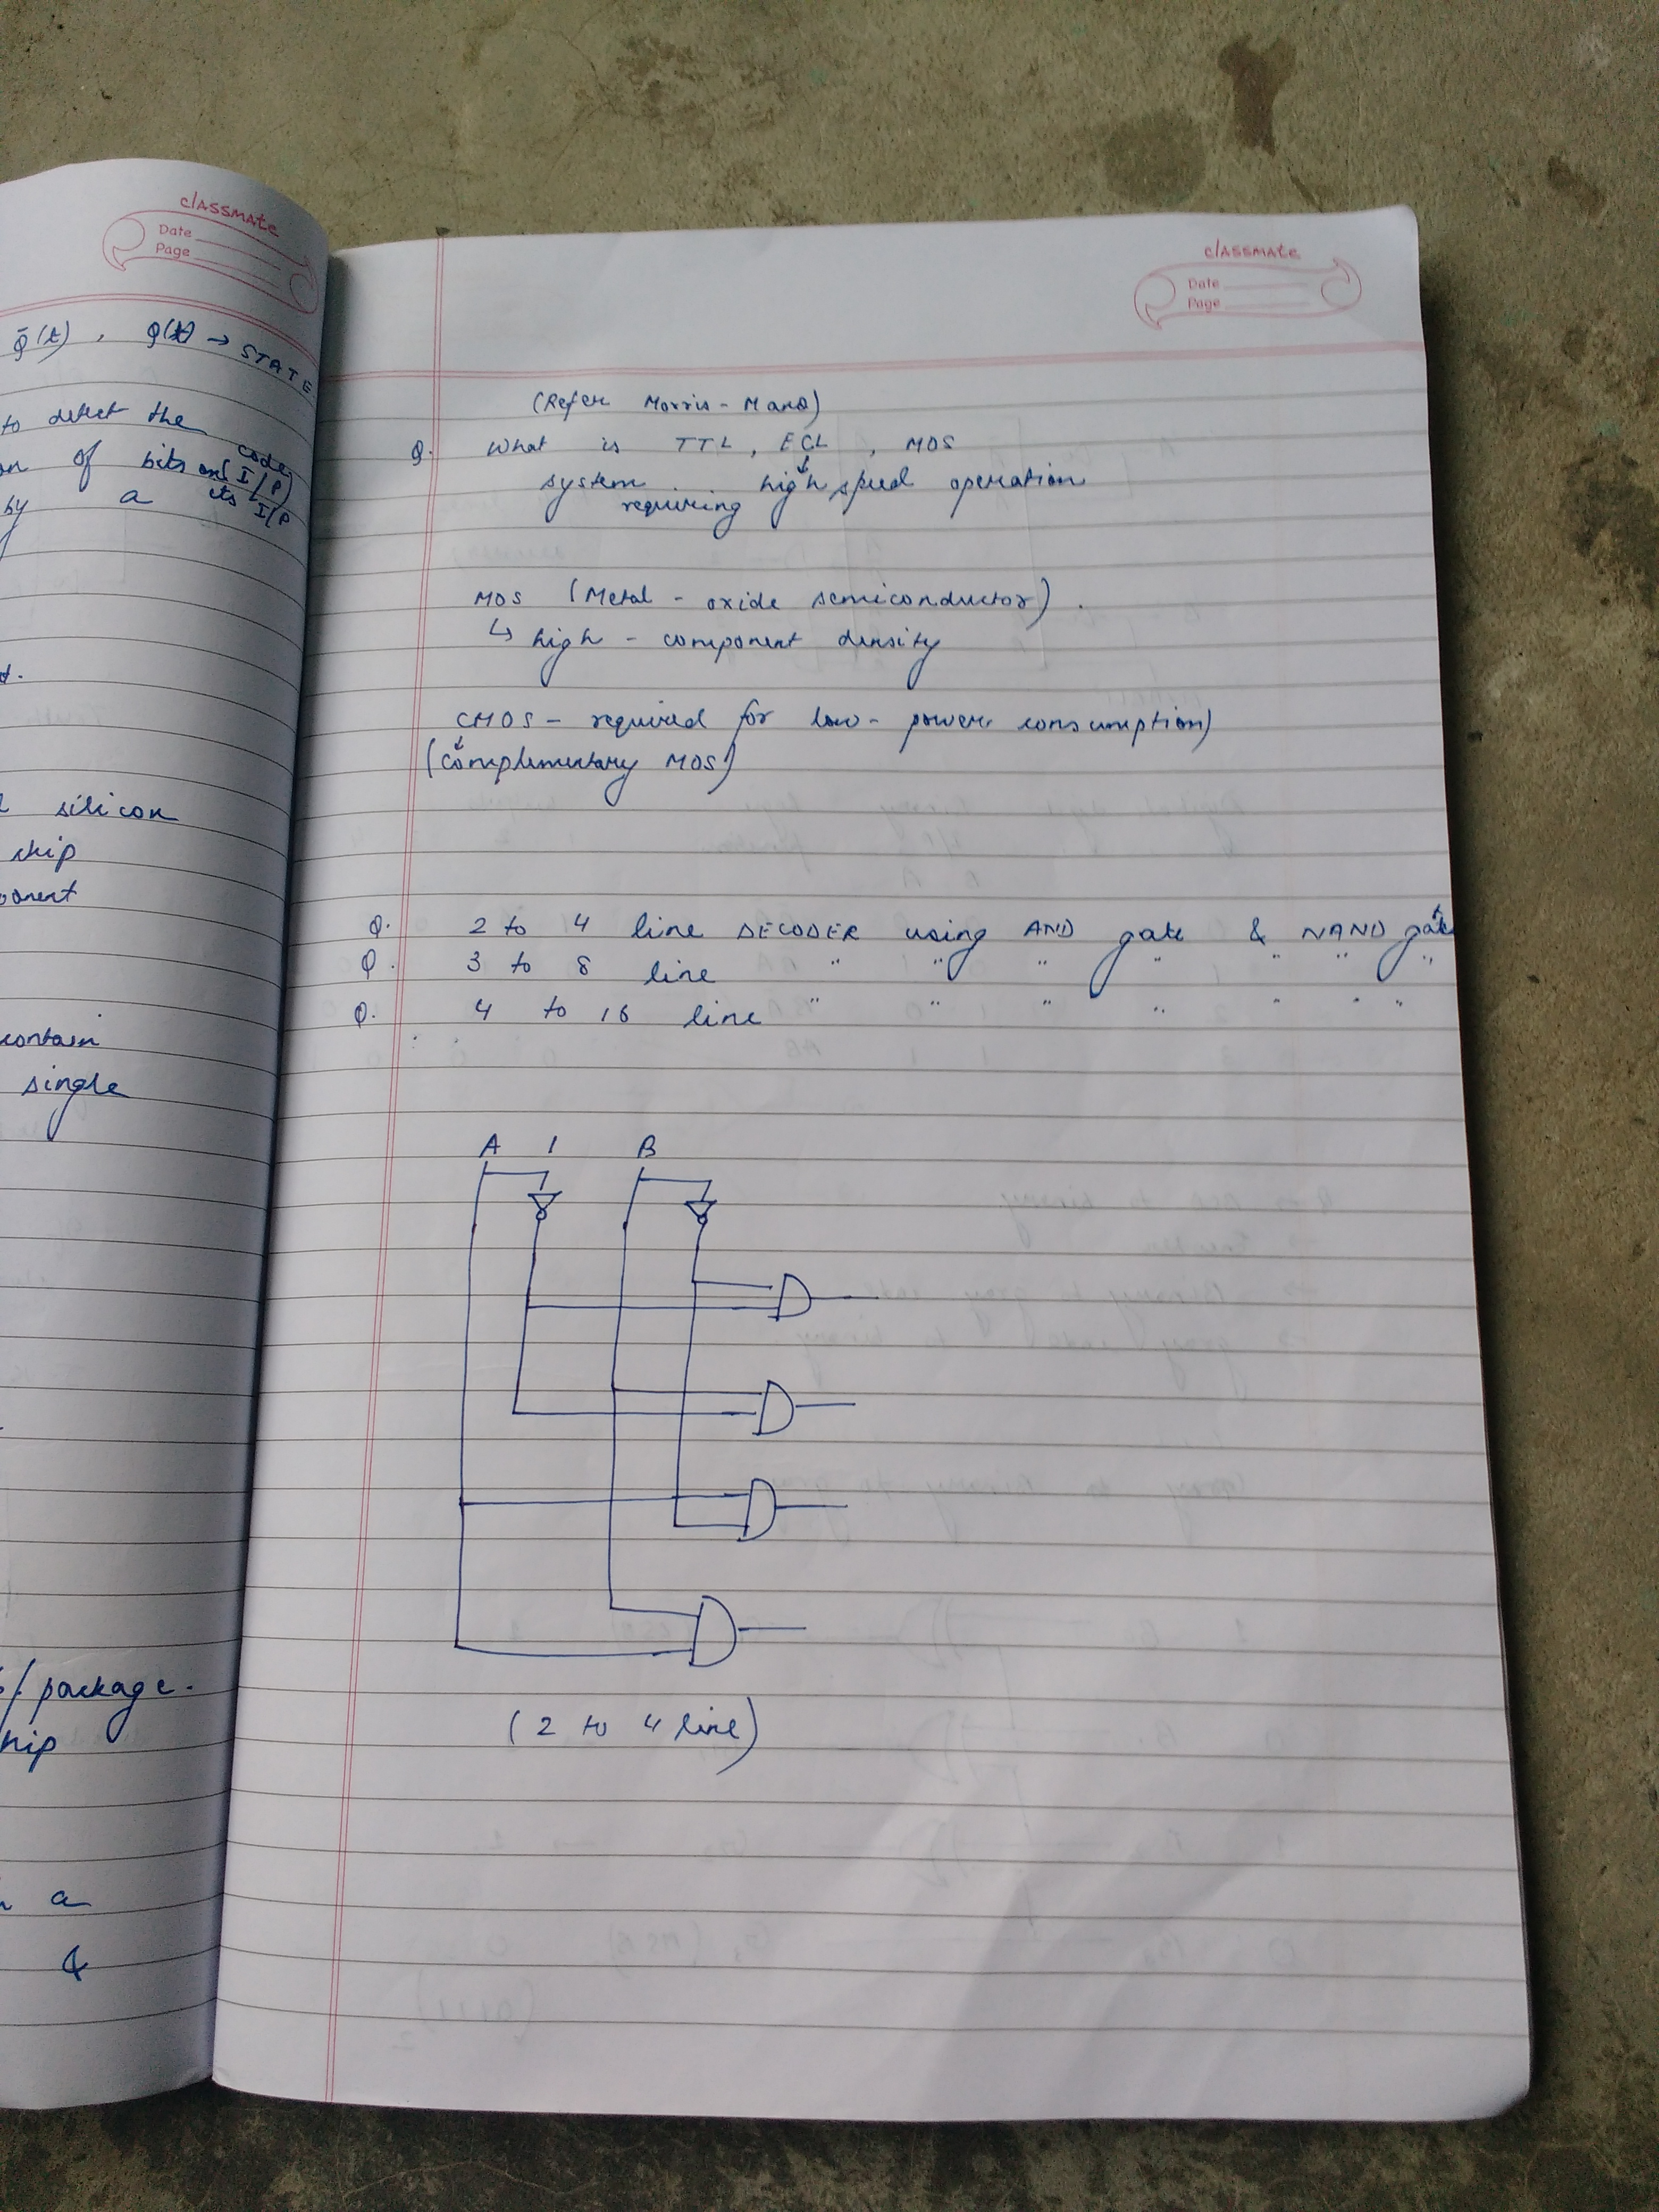 classmate
Date
Page
Q̄(t), Q(t) → STATE
to detect the
code
of bits and (I/P)
by a its I/P
silicon
chip
contain
single
/ package.
a
&
classmate
Date
Page
(Refer Morris-Mano)
Q. What is TTL, ECL, MOS
system high speed operation
requiring
MOS (Metal-oxide semiconductor).
↳ high-component density
CMOS - required for low-power consumption)
(complementary MOS)
Q. 2 to 4 line DECODER using AND gate & NAND gate
Q. 3 to 8 line " " " " " " "
Q. 4 to 16 line " " " " " " "
A 1 B
(2 to 4 line)